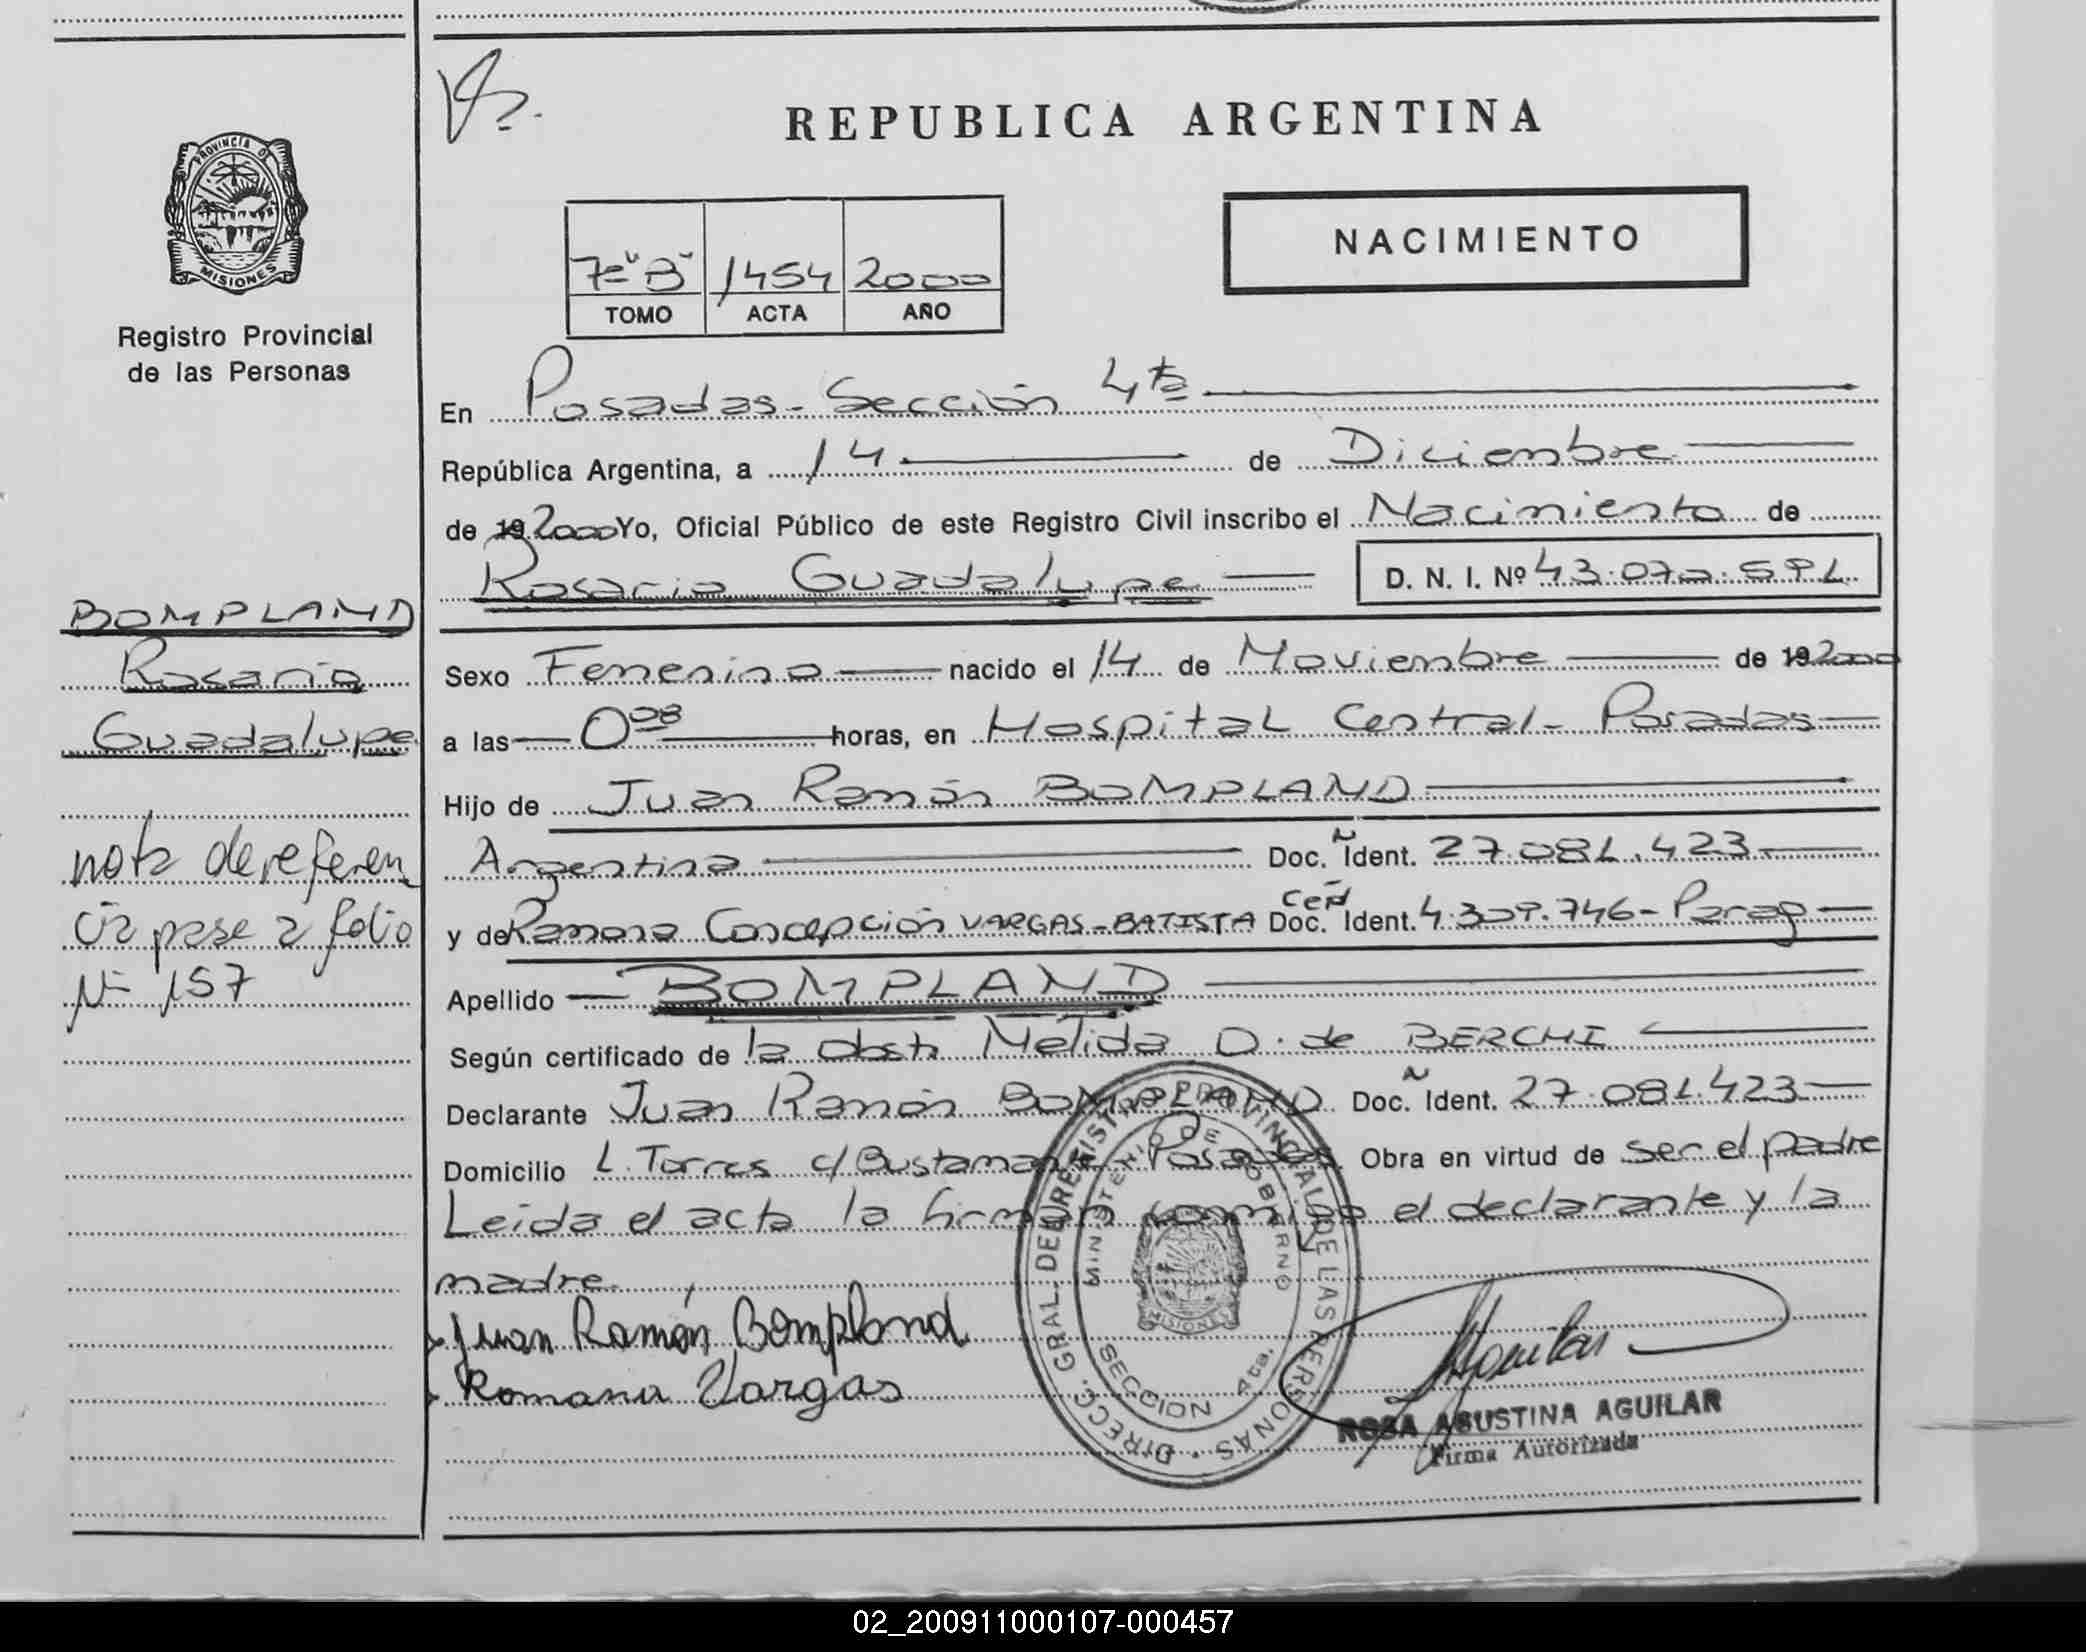 REPUBLICA ARGENTINA
PROVINCIA DE
MISIONES
Registro Provincial
de las Personas
NACIMIENTO
7º "B" 1454 2000
TOMO ACTA AÑO
En Posadas - Sección 4ta
República Argentina, a 14 de Diciembre
de 19 2000 Yo, Oficial Público de este Registro Civil inscribo el Nacimiento de
Rosario Guadalupe D. N. I. Nº 43.070.591
BOMPLAND
Rosario
Guadalupe
Sexo Femenino nacido el 14 de Noviembre de 19 2000
a las 0 08 horas, en Hospital Central - Posadas
Hijo de Juan Ramón BOMPLAND
Argentina Doc. Ident. 27.081.423
y de Ramona Concepción VARGAS - BATISTA Doc. Ident. 4.309.746 - Parag
Apellido BOMPLAND
nota de referen
cia pase a folio
Nº 157
Según certificado de la obst. Nélida O. de BERCHI
Declarante Juan Ramón BOMPLAND Doc. Ident. 27.081.423
Domicilio L. Torres c/ Bustamante Posadas Obra en virtud de ser el padre
Leida el acta la firman conmigo el declarante y la
madre.
Juan Ramón Bompland
Romana Vargas
DIRECC. GRAL. DEL REGISTRO PROVINCIAL DE LAS PERSONAS
MINISTERIO DE GOBIERNO
MISIONES
SECCION 4ta.
Aguilar
ROSA AGUSTINA AGUILAR
Firma Autorizada
02_200911000107-000457